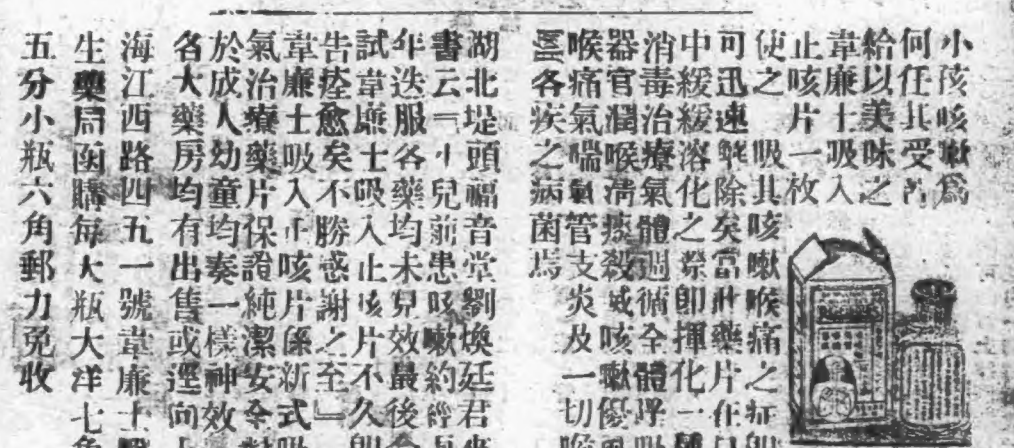 小孩咳嗽爲
何任其受苦
給以美味之
韋廉士吸入
止咳片一枚
使之吸其咳嗽喉痛之症
可迅速解除矣當此藥片在
中緩緩溶化之際卽揮化一
消毒治療氣體週循全體呼
器官潤喉清痰殺滅咳嗽優
喉痛氣喘氣管支炎及一切
各疾之病菌焉
湖北堤頭福音堂劉煥廷君
書云『小兒前患咳嗽約經
年迭服各藥均未見效最後
試韋廉士吸入止咳片不久
告痊愈矣不勝感謝之至』
韋廉士吸入止咳片係新式
氣治療藥片保證純潔安全
於成人幼童均奏一樣神效
各大藥房均有出售或逕向
海江西路四五一號韋廉士
生藥局函購每大瓶大洋七
五分小瓶六角郵力免收